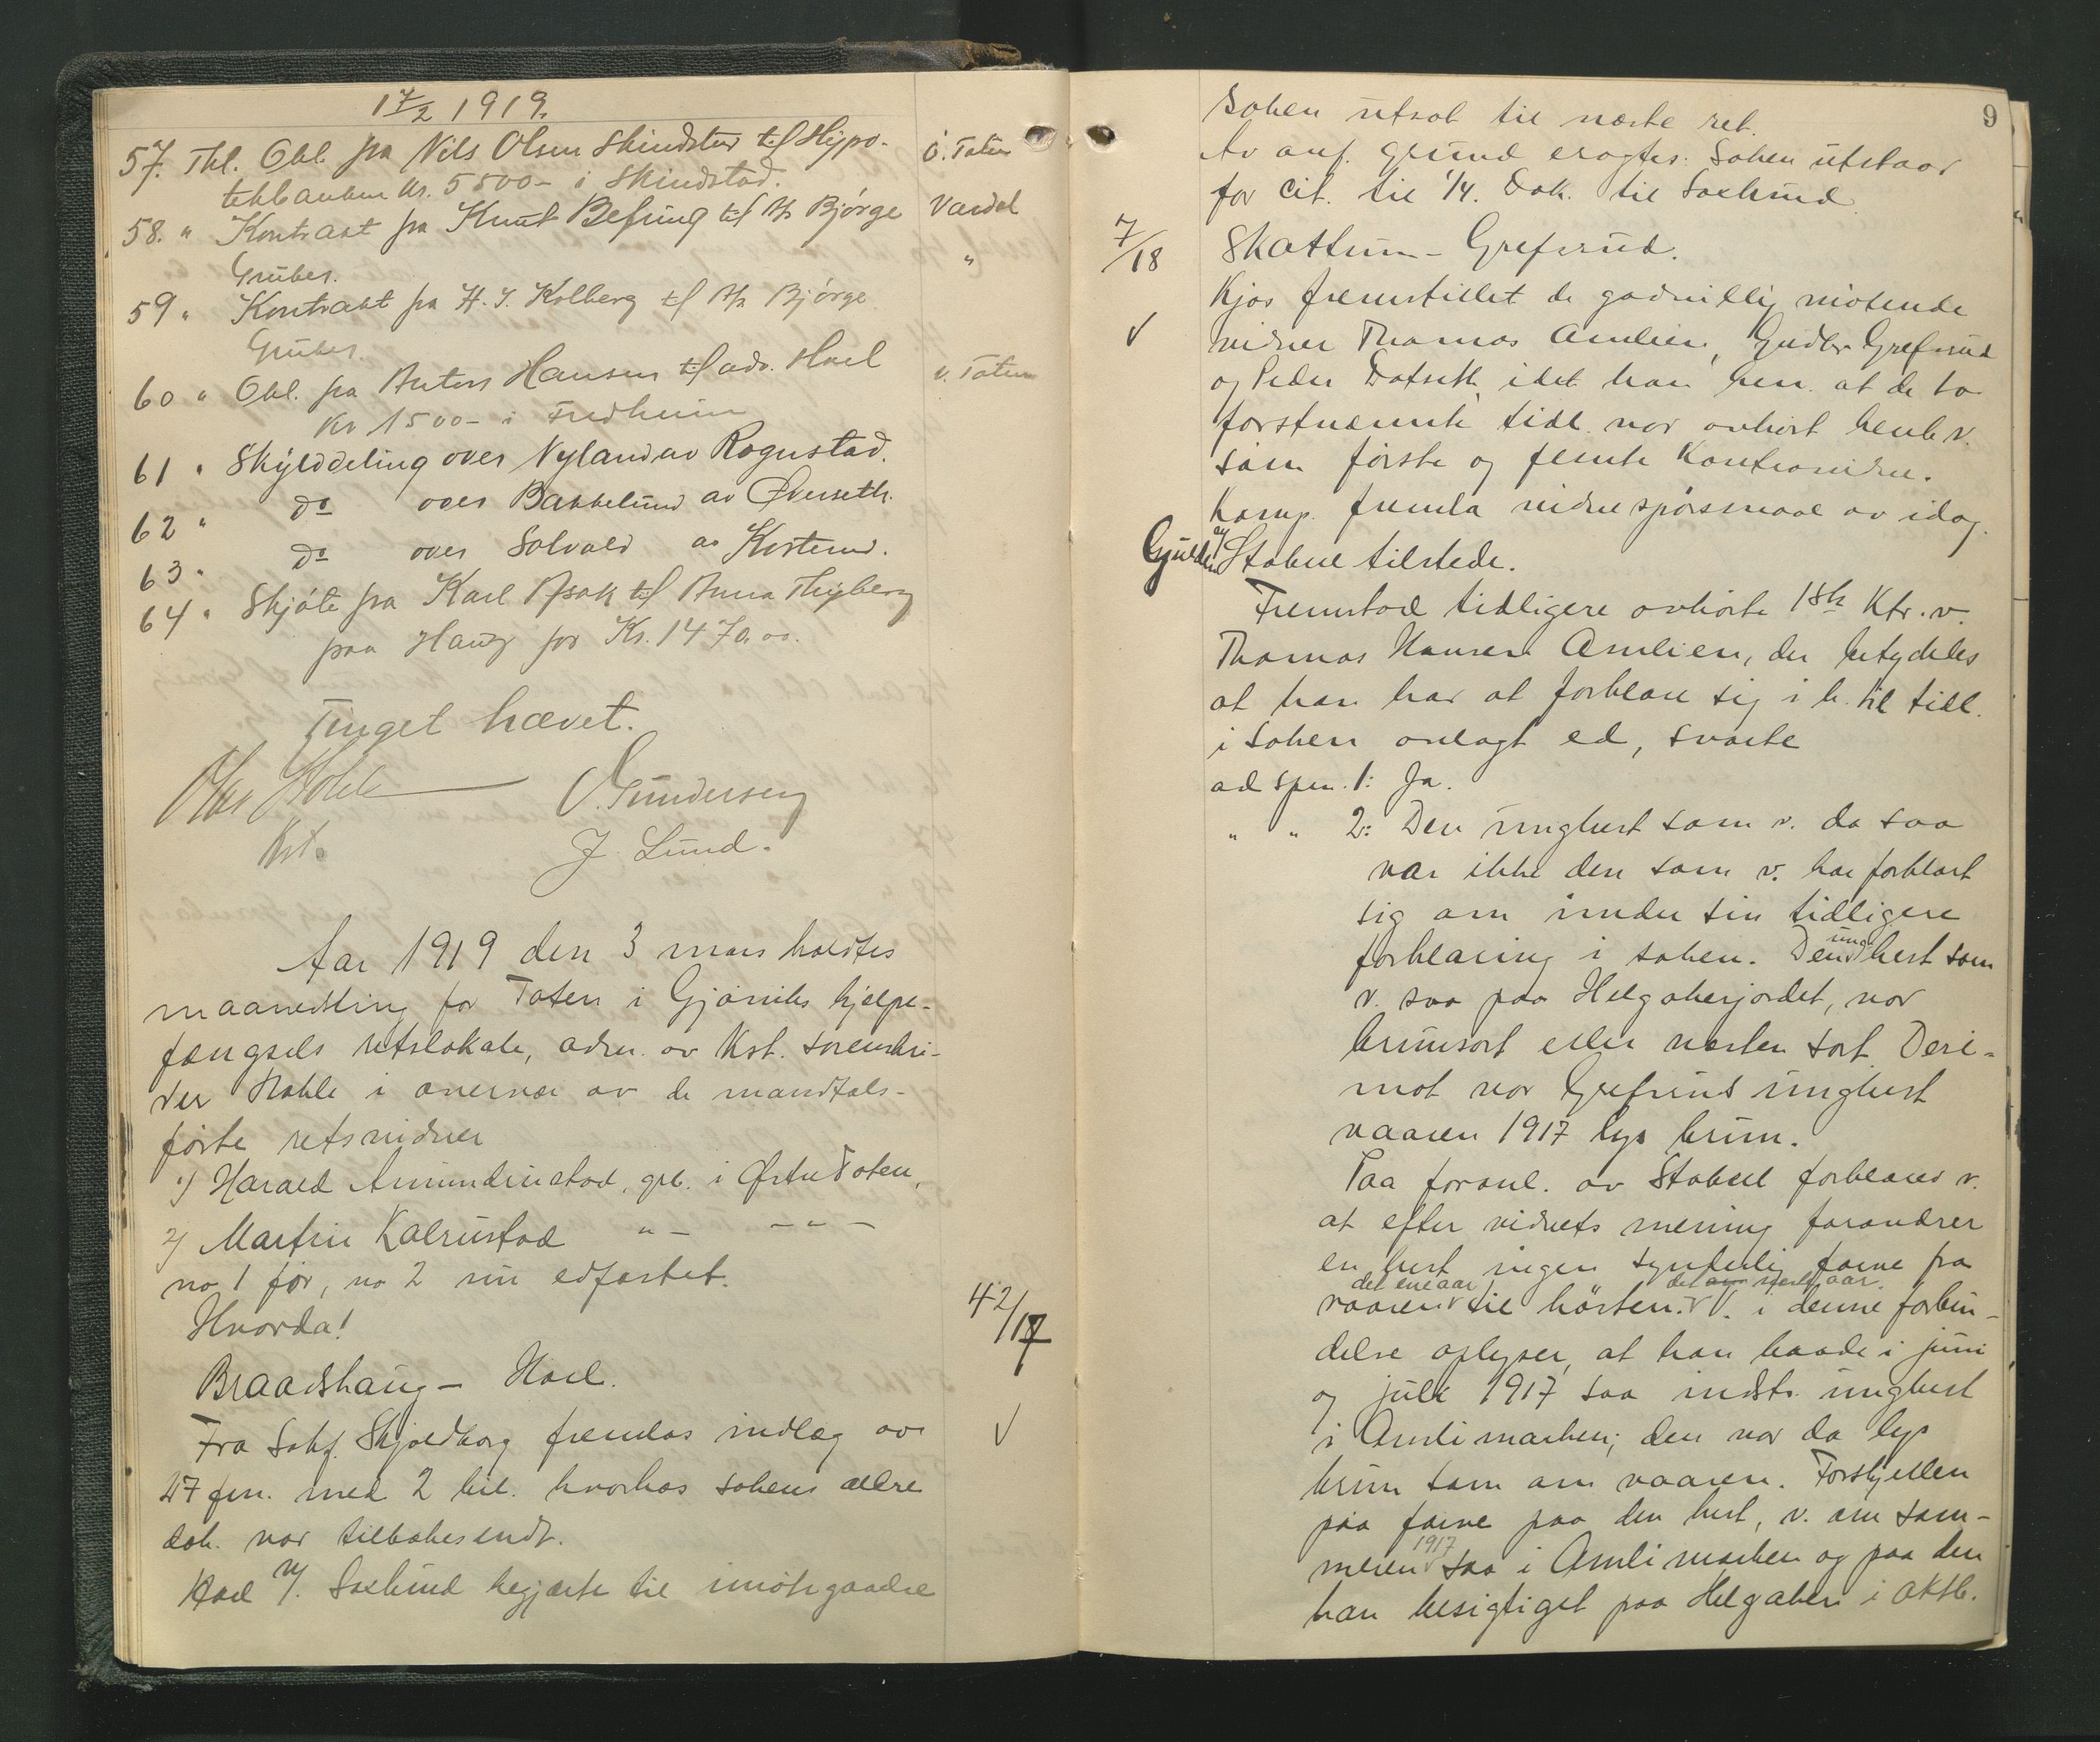 17/2 1919.
57. Thl. Obl. fra Nils Olsen Skindstad til Hypo- Ö. Toten
tekbanken kr. 5500- i Skindstad.
58. " Kontrakt fra Knut Befring til A/s Bjørge Vardal
Gruber.
59 " Kontrakt fra H. J. Kolberg til A/s Bjørge "
Gruber.
60 " Obl. fra Anton Hansen til adv. Hoel v. Toten
kr 1500- i Fredheim
61 " Skylddeling over Nyland av Rognstad.
62 " do over Bakkelund av Øverseth.
63 " do over Solvold av
64 " Skjøte fra Karl Asak til Anna Thyberg
paa Haug for Kr. 1470.00.
Tinget hævet.
Kst.
Gundersen
J. Lund.
Aar 1919 den 3 mars holdtes
maanedsting for Toten i Gjøviks hjelpe-
fængsels retslokale, adm. av kst. sorenskri-
ver Hohle i overvær av de mandtals-
førte retsvidner
1) Harald Amundrustad, grb. i Østre Toten,
2) Martin Kalrustad " - - " -
no 1 før, no 2 nu edfæstet.
Hvorda!
42/17
Braadshaug - Hoel.
Fra Sakf. Skjoldborg fremlas indlæg av
27 fm. med 2 bil. hvorhos sakens ældre
dok. var tilbakesendt.
Hoel v/ Soelund begjærte til imøtegaaelse
9
saken utsat til næste ret.
Av anf. grund eragtes: Saken utstaar
for cit. til 1/4. Dok. til Soelund
7/18
Skattum - Grefsrud.
Kjos fremstillet de godvillig møtende
vidner Thomas Amlien, Gudbr. Grefsrud
og Peder Dotseth, idet han bem. at de to
førstnævnte tidl. var avhørt henh.v.
som første og femte Kontravidne.
Komp. fremla vidnespørsmaal av idag.
Gulden v/ Stabell tilstede.
Fremstod tidligere avhørte 1ste Ktr. v.
Thomas Hansen Amlien, der betydedes
at han har at forklare sig i h. til tidl.
i saken avlagt ed, svarte
ad spm. 1: Ja.
" " 2: Den unghest som v. da saa
var ikke den som v. har forklart
sig om under sin tidligere
forklaring i saken. Den unge hest som
v. saa paa Helgakerjordet, var
brunsort eller næsten sort. Deri-
mot var Grefsruds unghest
vaaren 1917 lys brun.
Paa foranl. av Stabell forklarer v.
at efter vidnets mening forandrer
en hest ingen synderlig farve fra
vaaren det ene aar til høsten det næste aar. V. i denne forbin-
delse oplyser, at han baade i juni
og juli 1917 saa indst. unghest
i Amlimarken; den var da lys
brun som om vaaren. Forskjellen
paa farve paa den hest, v. om som-
meren 1917 saa i Amlimarken og paa den
han besigtiget paa Helgaker i oktb.